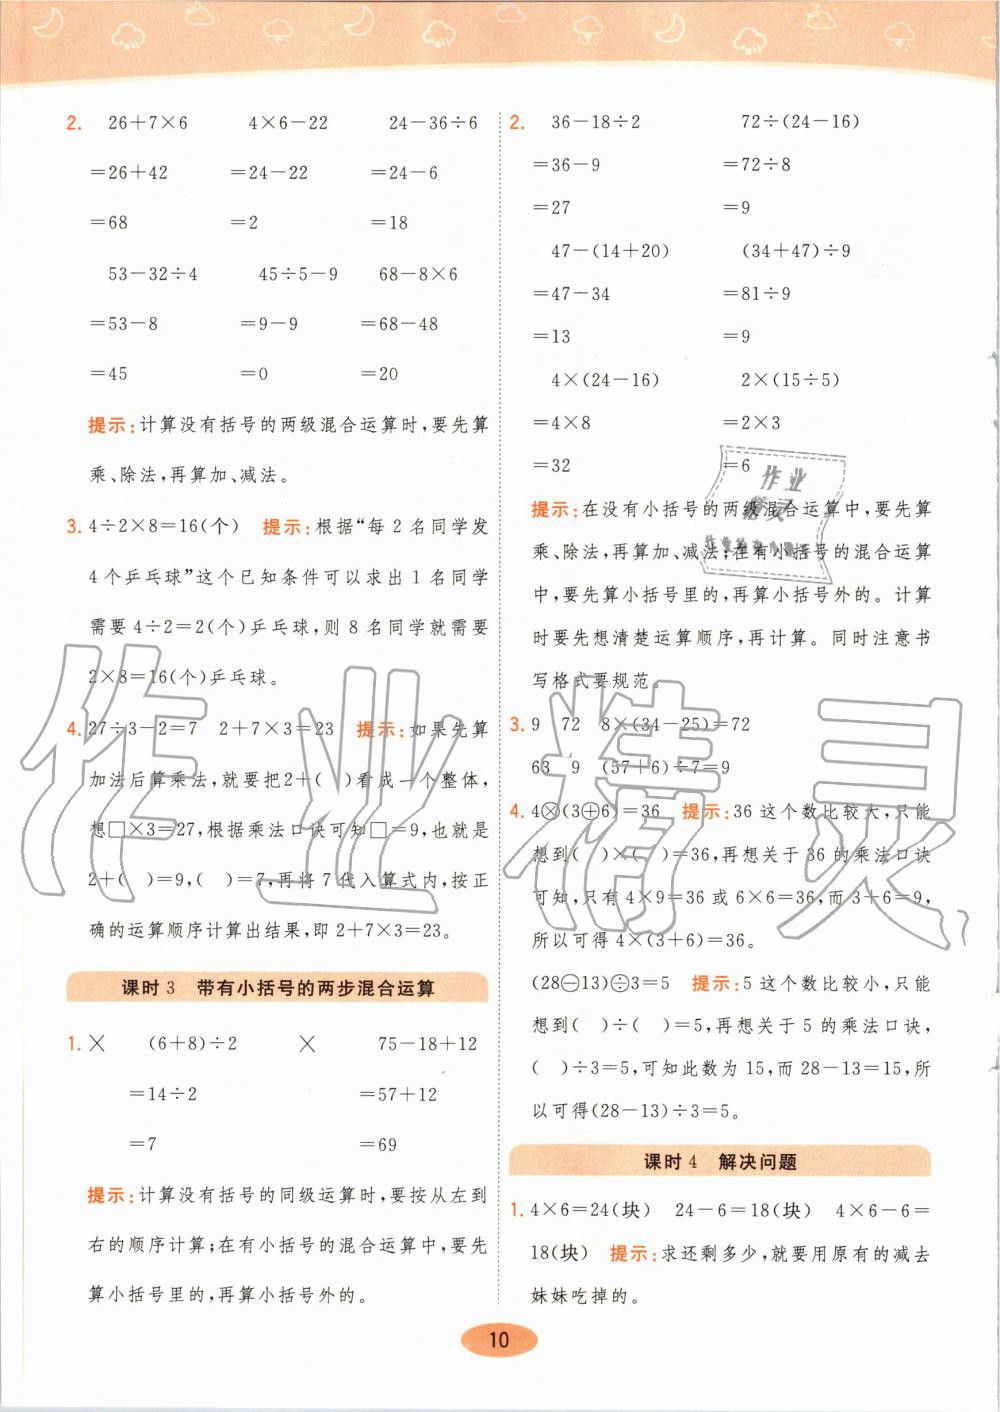 2. 26+7×6 4×6-22 24-36÷6
=26+42 =24-22 =24-6
=68 =2 =18
53-32÷4 45÷5-9 68-8×6
=53-8 =9-9 =68-48
=45 =0 =20
提示:计算没有括号的两级混合运算时,要先算
乘、除法,再算加、减法。
3. 4÷2×8=16(个) 提示:根据“每 2 名同学发
4 个乒乓球”这个已知条件可以求出 1 名同学
需要 4÷2=2(个)乒乓球,则 8 名同学就需要
2×8=16(个)乒乓球。
4. 27÷3-2=7 2+7×3=23 提示:如果先算
加法后算乘法,就要把2+( )看成一个整体,
想□×3=27,根据乘法口诀可知□=9,也就是
2+( )=9,( )=7,再将 7 代入算式内,按正
确的运算顺序计算出结果,即 2+7×3=23。
课时 3 带有小括号的两步混合运算
1. × (6+8)÷2 × 75-18+12
=14÷2 =57+12
=7 =69
提示:计算没有括号的同级运算时,要按从左到
右的顺序计算;在有小括号的混合运算中,要先
算小括号里的,再算小括号外的。
2. 36-18÷2 72÷(24-16)
=36-9 =72÷8
=27 =9
47-(14+20) (34+47)÷9
=47-34 =81÷9
=13 =9
4×(24-16) 2×(15÷5)
=4×8 =2×3
=32 =6
提示:在没有小括号的两级混合运算中,要先算
乘、除法,再算加、减法;在有小括号的混合运算
中,要先算小括号里的,再算小括号外的。计算
时要先想清楚运算顺序,再计算。同时注意书
写格式要规范。
3. 9 72 8×(34-25)=72
63 9 (57+6)÷7=9
4. 4⊗(3⊕6)=36 提示:36 这个数比较大,只能
想到( )×( )=36,再想关于 36 的乘法口诀
可知,只有 4×9=36 或 6×6=36,而 3+6=9,
所以可得 4×(3+6)=36。
(28⊖13)⨸3=5 提示:5 这个数比较小,只能
想到( )÷( )=5,再想关于 5 的乘法口诀,
( )÷3=5,可知此数为 15,而 28-13=15,所
以可得(28-13)÷3=5。
课时 4 解决问题
1. 4×6=24(块) 24-6=18(块) 4×6-6=
18(块) 提示:求还剩多少,就要用原有的减去
妹妹吃掉的。
10
作业精灵
作业
精灵